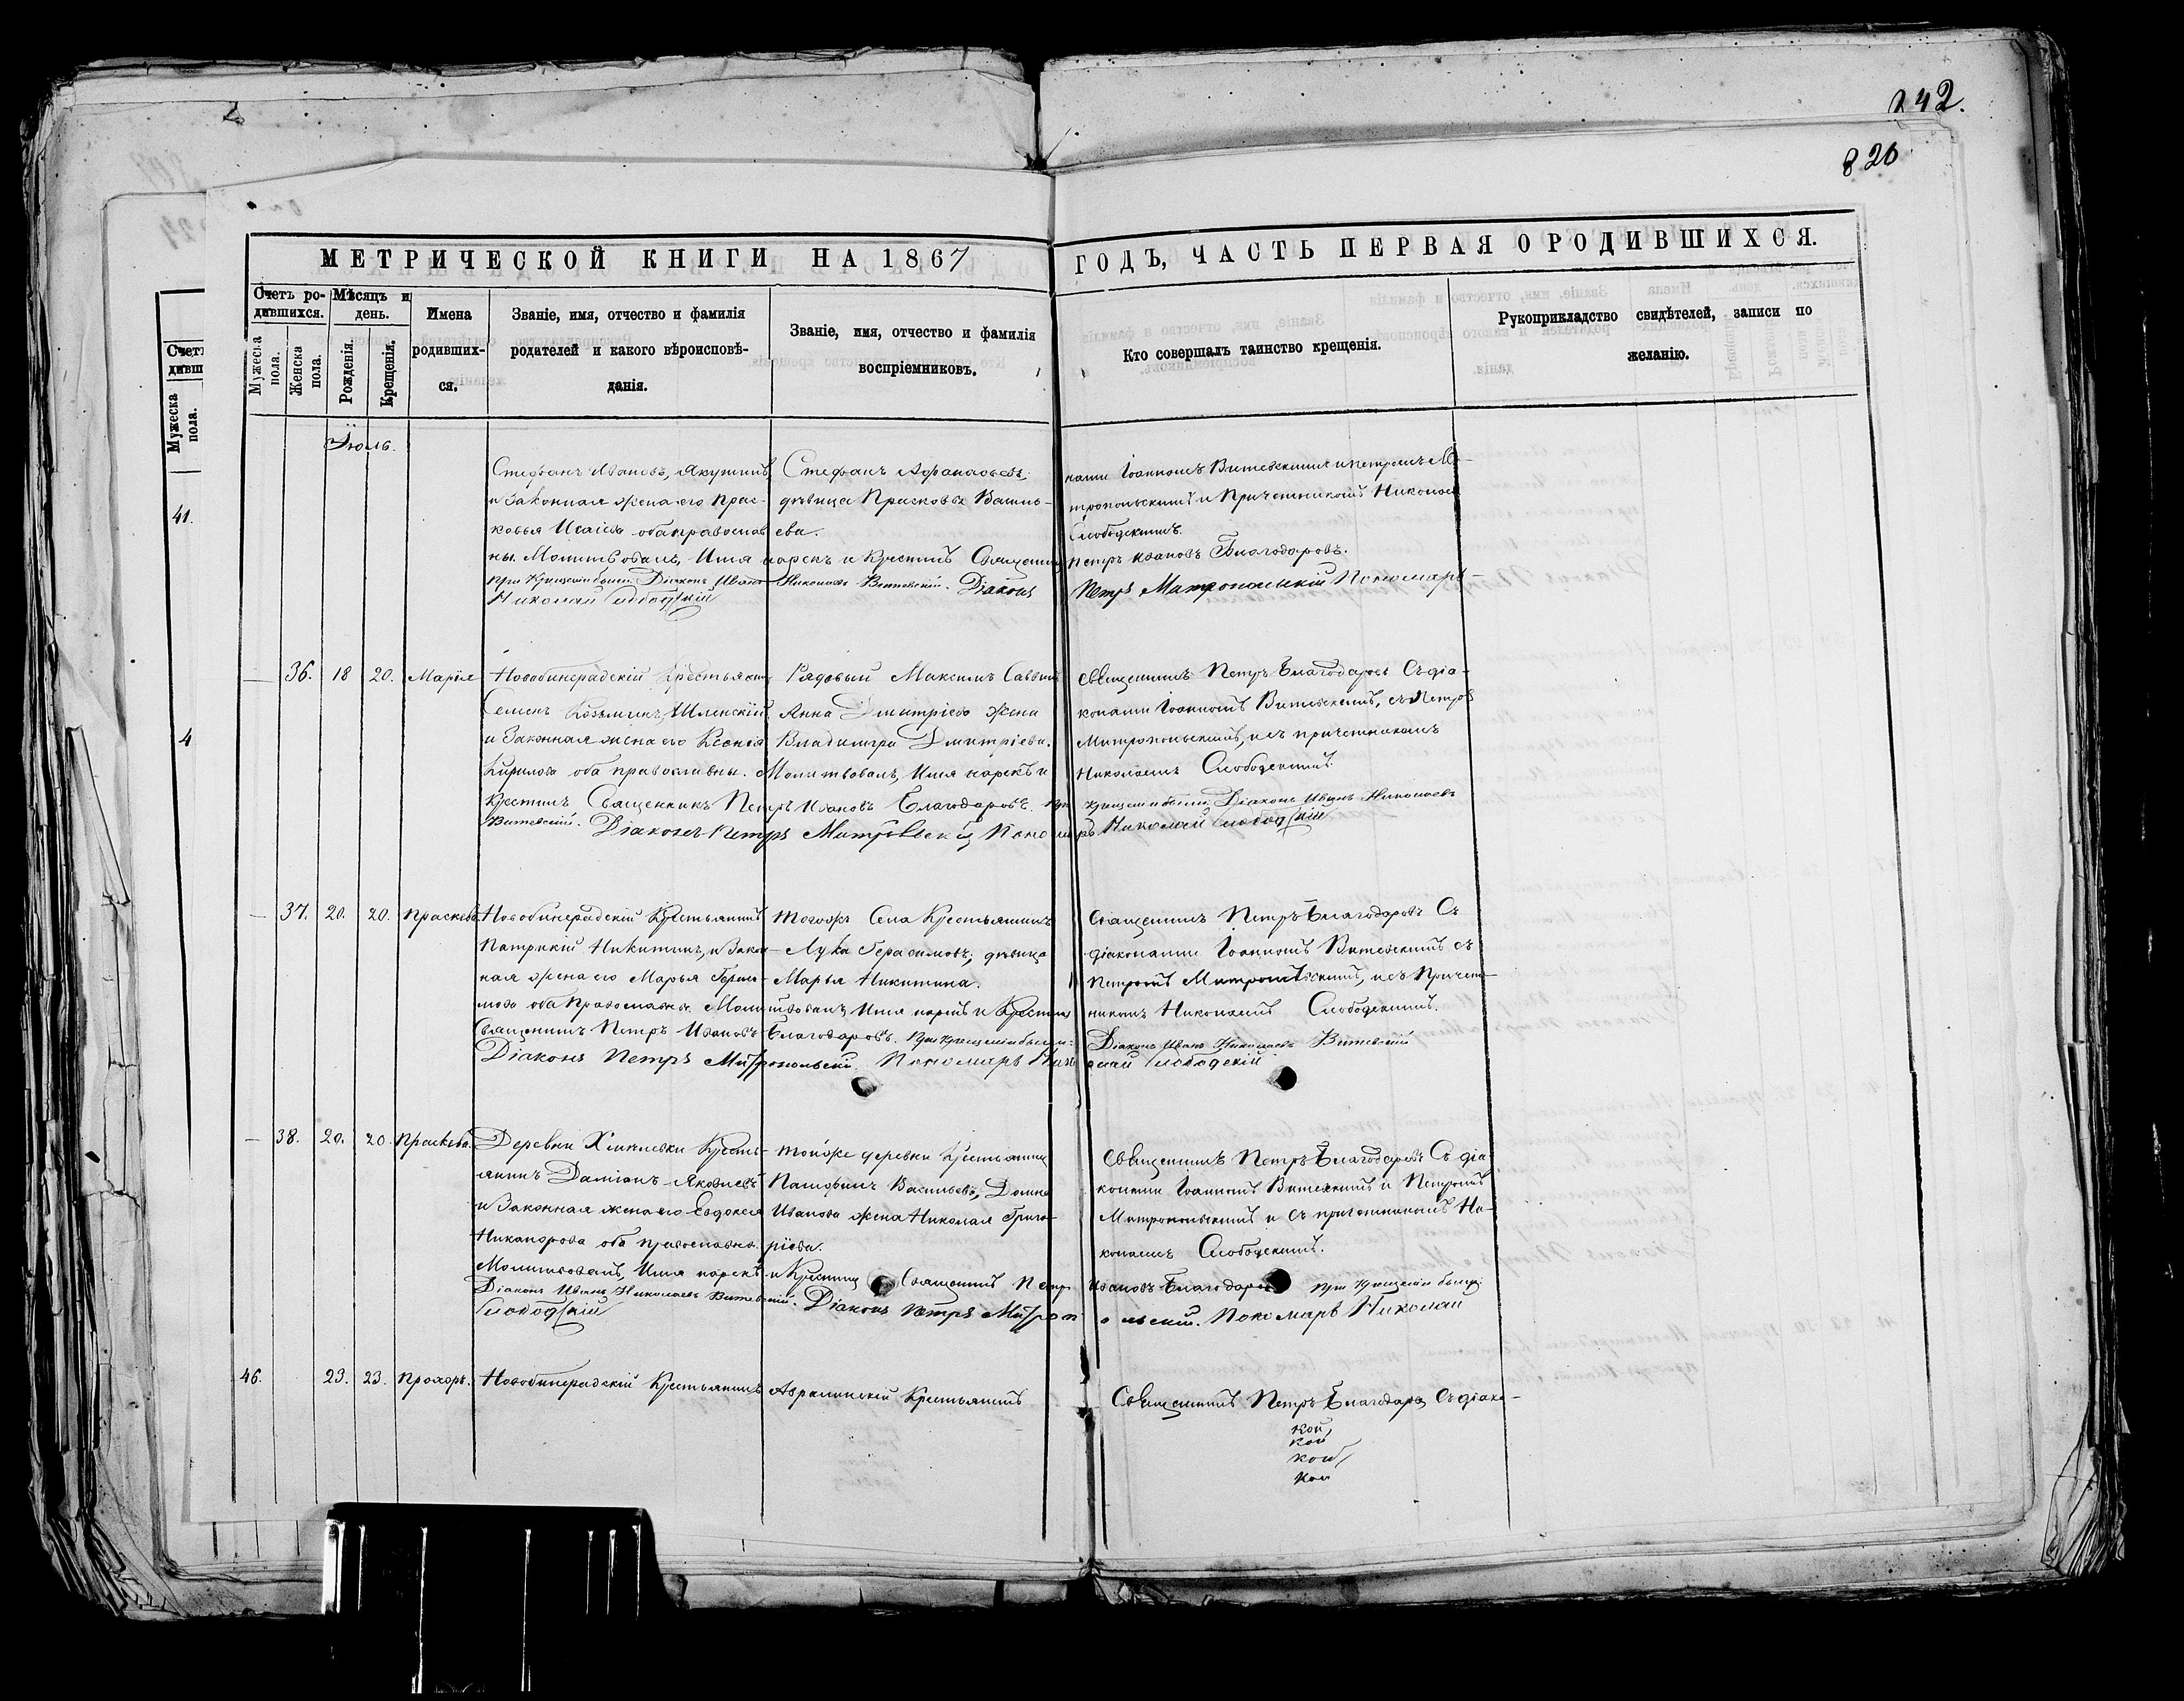 242.
820
МЕТРИЧЕСКОЙ КНИГИ НА 1867
ГОДЪ, ЧАСТЬ ПЕРВАЯ О РОДИВШИХСЯ.
Счетъ родившихся.
Мужеска пола.
Женска пола.
Мѣсяцъ и день.
Рожденія.
Крещенія.
Имена родивших-
ся.
Званіе, имя, отчество и фамилія
родителей и какого вѣроисповѣ-
данія.
Званіе, имя, отчество и фамилія
воспріемниковъ.
Кто совершалъ таинство крещенія.
Рукоприкладство свидѣтелей, записи по
желанію.
Мужеска пола.
41.
4
Іюль.
Стефанъ Ивановъ, Якушинъ,
и Законная жена его Прас-
ковья Исаіева оба православ
ны. Молитвовалъ, Имя нарекъ и Крестилъ Священни
при Крещеніи были: Діаконъ Иванъ Николаевъ Витевскій. Діаконъ
Николай Слободскій
Стефанъ Афанасьевъ;
дѣвица Прасковья Василь-
ева.
нами Іоанномъ Витевскимъ и Петромъ Ми-
тропольскимъ и Причетникомъ Николаем
Слободскимъ.
Петръ Ивановъ Благодаровъ.
Петръ Митропольскій Пономарь
36. 18 20. Марія
Новобинерадскій Крестьянин
Семенъ Козьминъ, Шленскій
и Законная жена его Ксенія
Кирилова оба православны. Молитвовалъ, Имя нарекъ и
Крестилъ Священникъ Петръ Ивановъ Благодаровъ. при
Витевскій. Діаконъ Петръ Митропольскій Пономарь Николай Слободскій
Рядовый Максимъ Саввинъ
Анна Дмитріева жена
Владимира Дмитріева.
Священникъ Петръ Благодаровъ Съ діа-
конами Іоанномъ Витевскимъ, съ Петром
Митропольскимъ, и съ причетникомъ
Николаемъ Слободскимъ.
Крещеніи были: Діаконъ Иванъ Николаевъ
37. 20. 20. Праскева
Новобинерадскій Крестьянинъ
Патрикій Никитинъ, и Закон-
ная жена его Марья Гераси-
мова оба Православны. Молитвовалъ, Имя нарекъ и Крестилъ
Священникъ Петръ Ивановъ Благодаровъ. При крещеніи были:
Діаконъ Петръ Митропольскій. Пономарь Нико
тогожъ Села Крестьянинъ
Лука Герасимовъ; дѣвица
Марья Никитина.
Священникъ Петръ Благодаровъ Съ
діаконами Іоанномъ Витевскимъ съ
Петромъ Митропольскимъ, и съ Причет-
никомъ Николаемъ Слободскимъ.
Діаконъ Иванъ Николаевъ Витевскій
лай Слободскій
38. 20. 20. Праскева.
Деревни Крестьянинъ Даміанъ Яковлевъ
и Законная жена его Евдокея
Никанорова оба православны.
Молитвовалъ, Имя нарекъ и Крестилъ Священникъ Петръ
Діаконъ Иванъ Николаевъ Витевскій. Діаконъ Петръ Митроп
Слободскій
тойже деревни Крестьянинъ
Васильевъ, Домна
Иванова жена Николая Григо-
ріева.
Священникъ Петръ Благодаровъ Съ діа-
конами Іоанномъ Витевскимъ и Петромъ
Митропольскимъ и Съ причетникомъ Ни-
колаемъ Слободскимъ.
Ивановъ Благодаровъ При Крещеніи были:
ольскій. Пономарь Николай
46. 23. 23. Прохоръ.
Новобинерадскій Крестьянинъ
Крестьянинъ
Священникъ Петръ Благодаровъ Съ діако-
кой,
кой
кой
кой